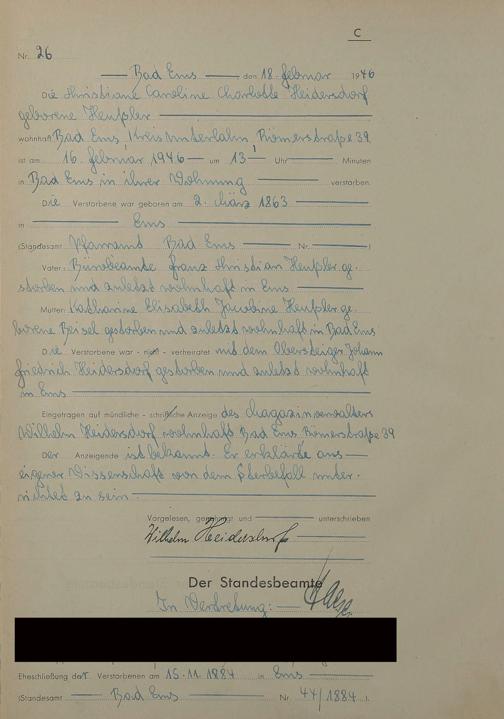 C
Nr. 26
Bad Ems den 18. Februar 1946
Die Christiane Caroline Charlotte Heidersdorf
geborene Heußler
wohnhaft Bad Ems, Kreis Unterlahn, Römerstraße 39
ist am 16. Februar 1946 um 13 Uhr Minuten
in Bad Ems in ihrer Wohnung verstorben.
Die Verstorbene war geboren am 2. März 1863
in Ems
(Standesamt Pfarramt Bad Ems Nr. )
Vater: Bürobeamte Franz Christian Heußler ge-
storben und zuletzt wohnhaft in Ems
Mutter: Katharine Elisabeth Jacobine Heußler ge-
borene Beisel gestorben und zuletzt wohnhaft in Bad Ems
Die Verstorbene war - nicht - verheiratet mit dem Obersteiger Johann
Friedrich Heidersdorf gestorben und zuletzt wohnhaft
in Ems
Eingetragen auf mündliche - schriftliche Anzeige des Magazinverwalters
Wilhelm Heidersdorf wohnhaft Bad Ems Römerstraße 39
Der Anzeigende ist bekannt. Er erklärte aus
eigener Wissenschaft von dem Sterbefall unter-
richtet zu sein
Vorgelesen, genehmigt und unterschrieben
Wilhelm Heidersdorf
Der Standesbeamte
In Vertretung:
Eheschließung der Verstorbenen am 15.11.1884 in Ems
(Standesamt Bad Ems Nr. 44/1884 ).